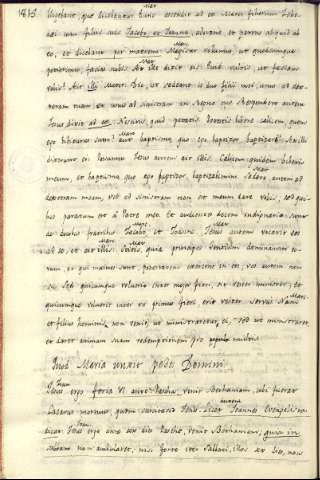 1815
dicebant, quae dicebantur Tunc accessit ad eum Mater filiorum Zebe-
daei cum filiis suis Jacobo, et Joanne, adorans, et petens aliquid ab
eo, et dicebant per matrem Magister volumus, ut quodcumque
petierimus, facias nobis. At Ille dixit eis: Quid vultis, ut faciam
vobis? Ait illi Mater. Dic, ut sedeant ii duo filii mei, unus ad dex-
teram tuam et unus ad sinistram in Regno tuo. Respondens autem
Jesus dixit ad eos. Nescitis, quid petatis. Potestis bibere calicem, quem
ego bibiturus sum? aut baptismo, quo ego baptizor, baptizari? At illi
dixerunt ei: Possumus. Jesus autem ait illis. Calicem quidem bibetis
meum, et baptismo, quo ego baptizor, baptizabimini. Sedere autem ad
dexteram meam, vel ad sinistram non est meum dare vobis, sed qui-
bus paratum est a Patre meo. Et audientes decem indignati sunt
de duobus fratribus Jacobo et Joanne. Jesus autem vocavit eos
ad se, et ait illis. Scitis, quia principes gentium dominantur eo-
rum, et qui majores sunt, potestatem exercent in eos, vos autem non
sic. Sed quicumque voluerit inter vos major fieri, sit vester minister, et
quicumque voluerit inter vos primus fieri erit vester servus. Nam
et filius hominis non venit, ut ministraretur ei, sed ut ministraret,
et daret animam suam redemptionem pro multis.
Maria unxit pedes Domini
Jesus ergo feria VI ante Pascha, venit Bethaniam, ubi fuerat
Lazarus mortuus, quem suscitavit Jesus. Licet Joannes Evangelista
dicat: Jesus ergo ante sex dies Paschae, venit Bethaniam, quia in
Sabbato non ambulavit, nisi forte